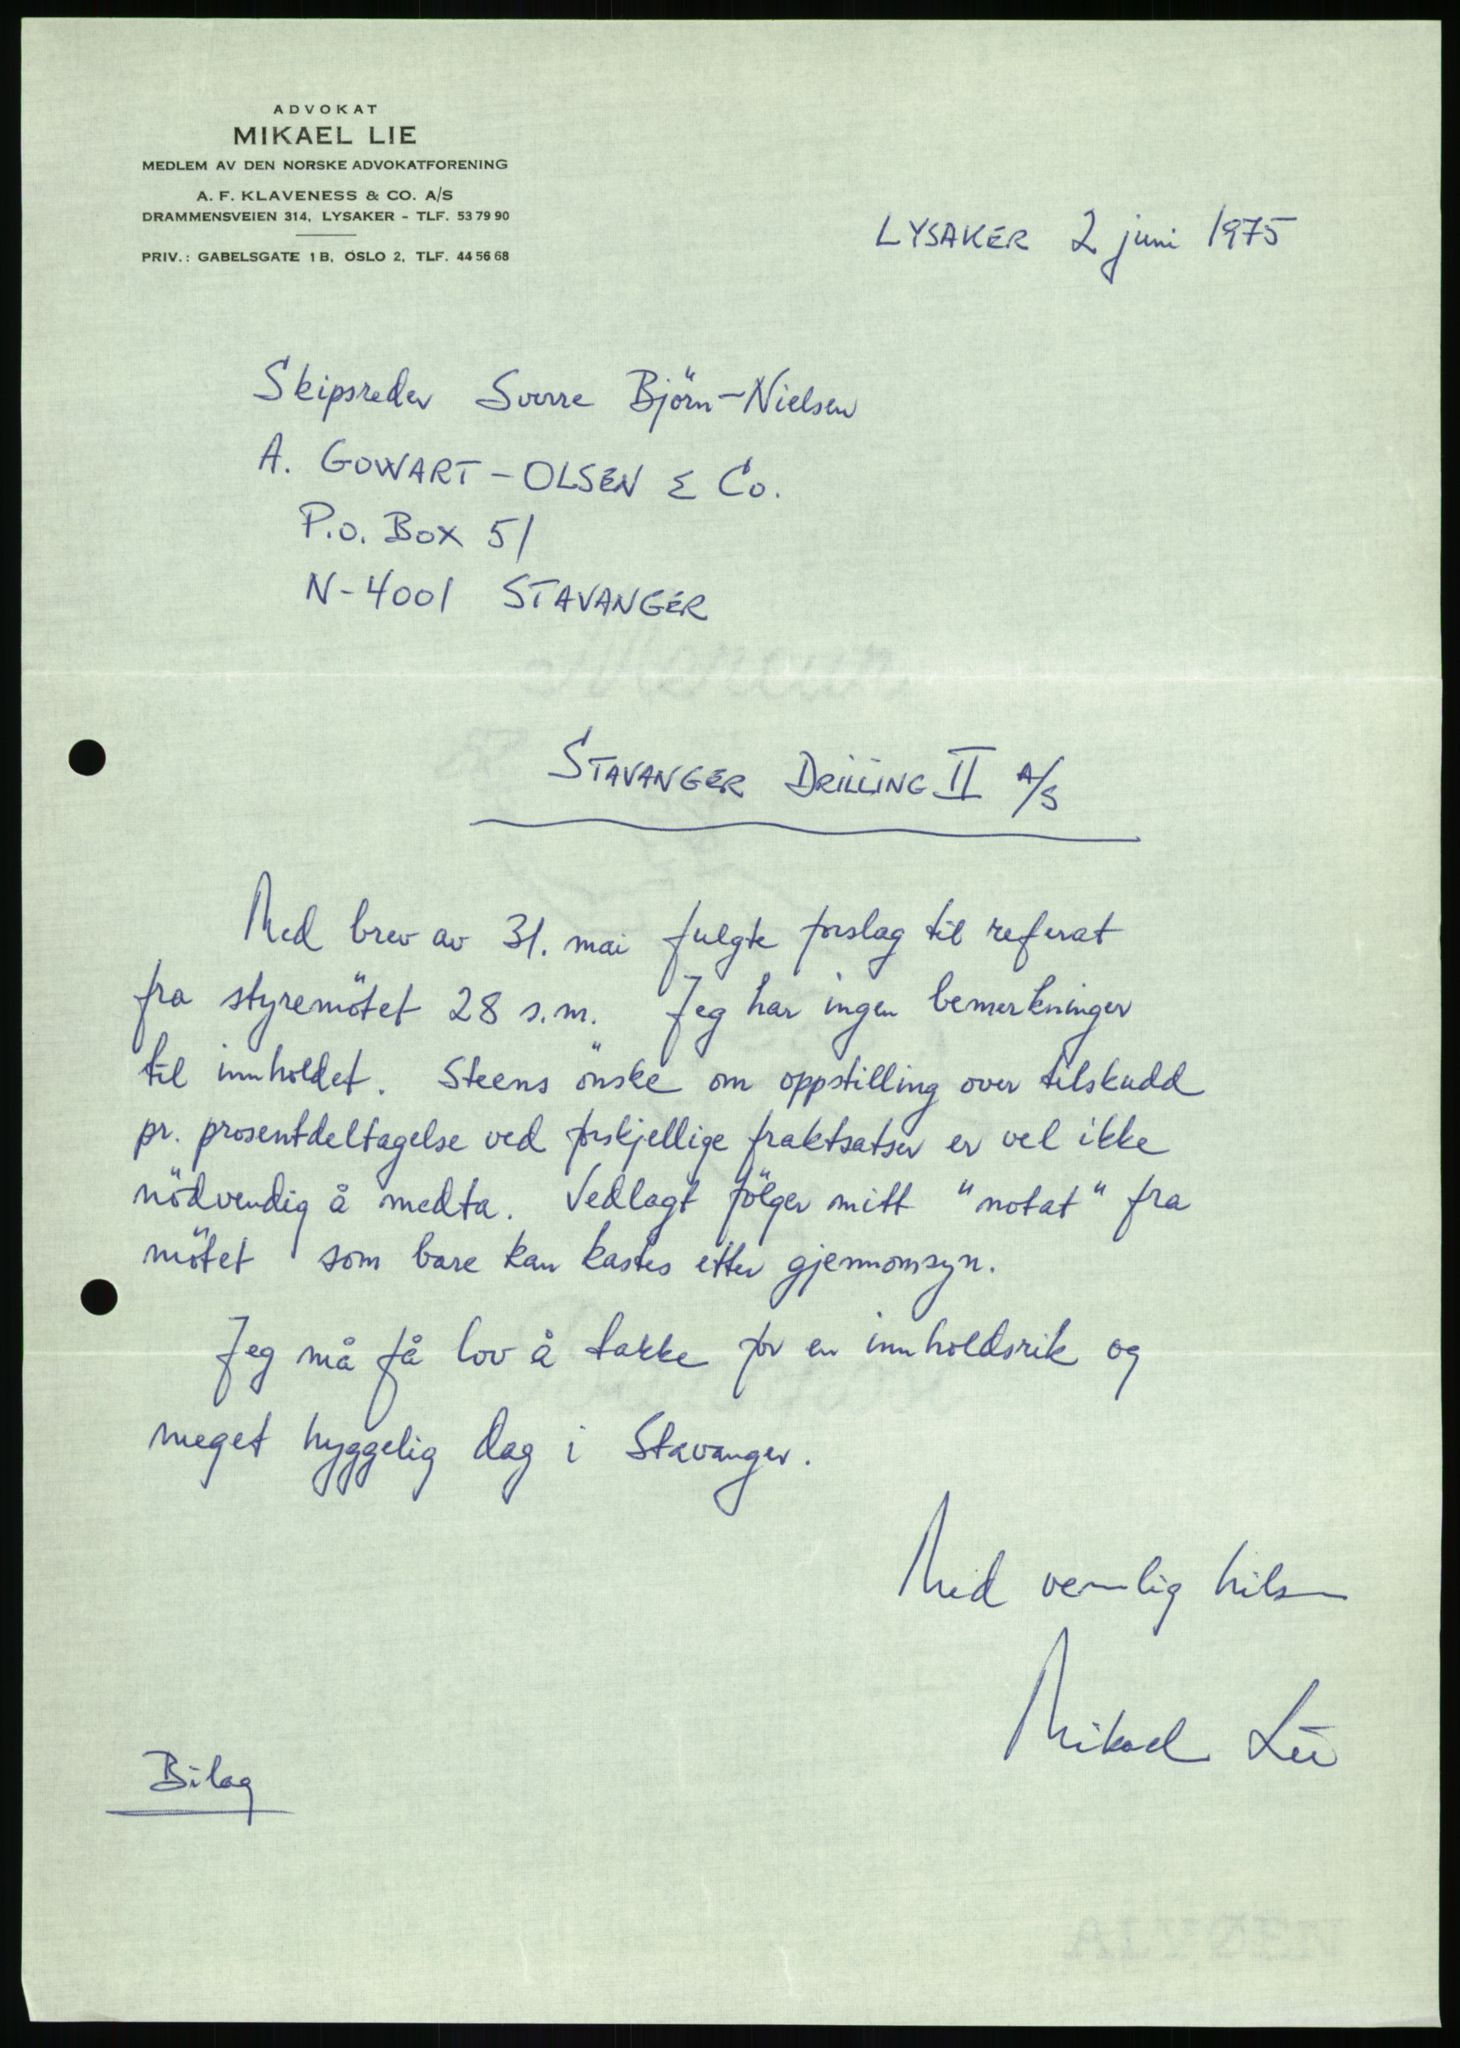 ADVOKAT
MIKAEL LIE
MEDLEM AV DEN NORSKE ADVOKATFORENING
A. F. KLAVENESS & CO. A/S
DRAMMENSVEIEN 314, LYSAKER - TLF. 53 79 90
PRIV.: GABELSGATE 1B, OSLO 2, TLF. 44 56 68
LYSAKER 2 juni 1975
Skipsreder Sverre Björn-Nielsen
A. GOWART-OLSEN & Co.
P.O. Box 51
N-4001 STAVANGER
STAVANGER DRILLING II A/S
Med brev av 31. mai fulgte forslag til referat
fra styremötet 28 s.m. Jeg har ingen bemerkninger
til innholdet. Steens önske om oppstilling over tilskudd
pr. prosentdeltagelse ved forskjellige fraktsatser er vel ikke
nödvendig å medta. Vedlagt fölger mitt "notat" fra
mötet som bare kan kastes etter gjennomsyn.
Jeg må få lov å takke for en innholdsrik og
meget hyggelig dag i Stavanger.
Med vennlig hilsen
Mikael Lie
Bilag